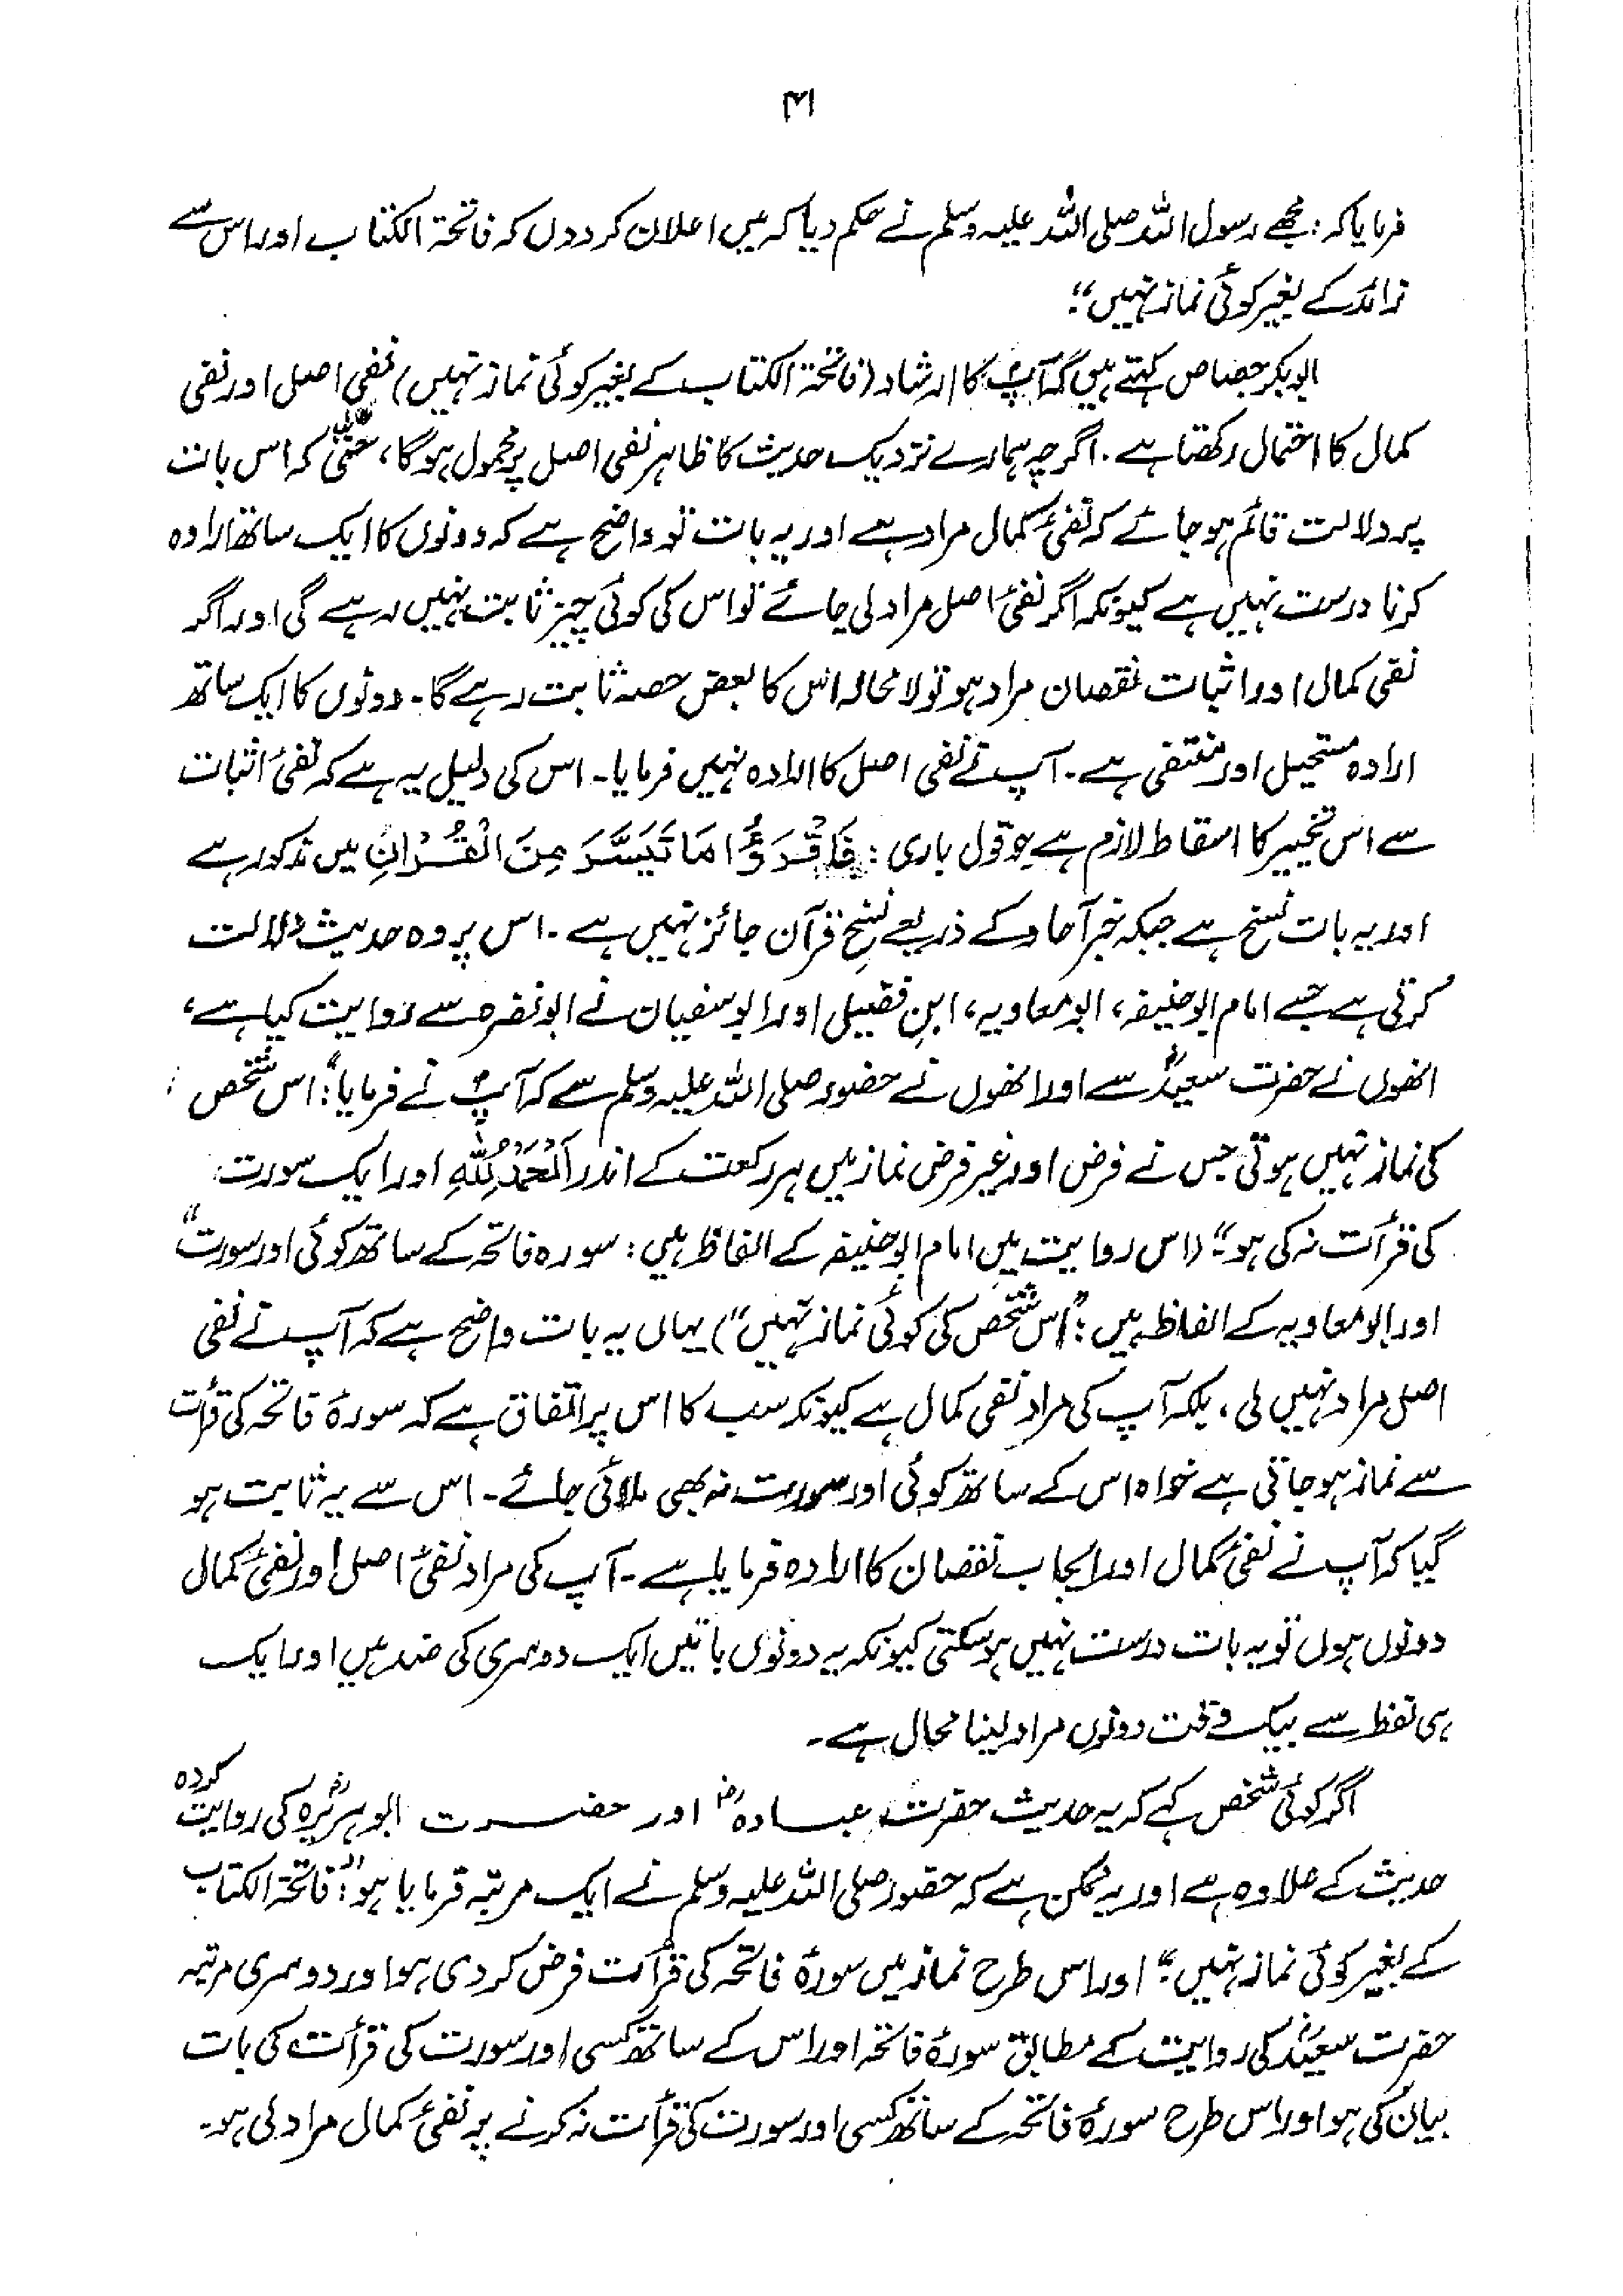 ۴۱
فرمایا کہ: مجھے رسول اللہ صلی اللہ علیہ وسلم نے حکم دیا کہ میں اعلان کر دوں کہ فاتحۃ الکتاب اور اس سے
زائد کے بغیر کوئی نماز نہیں"۔
ابوبکر جصاص کہتے ہیں کہ آپؐ کا ارشاد (فاتحۃ الکتاب کے بغیر کوئی نماز نہیں) نفی اصل اور نفی
کمال کا احتمال رکھتا ہے۔ اگرچہ ہمارے نزدیک حدیث کا ظاہر نفی اصل پر محمول ہوگا، حتّٰی کہ اس بات
پر دلالت قائم ہو جائے کہ نفیٔ کمال مراد ہے اور یہ بات تو واضح ہے کہ دونوں کا ایک ساتھ ارادہ
کرنا درست نہیں ہے کیونکہ اگر نفیٔ اصل مراد لی جائے تو اس کی کوئی چیز ثابت نہیں رہے گی اور اگر
نفی کمال اور اثبات نقصان مراد ہو تو لا محالہ اس کا بعض حصہ ثابت رہے گا۔ دونوں کا ایک ساتھ
ارادہ مستحیل اور منتفی ہے۔ آپ نے نفی اصل کا ارادہ نہیں فرمایا۔ اس کی دلیل یہ ہے کہ نفیٔ اثبات
سے اس تخییر کا اسقاط لازم ہے جو قول باری: فَاقْرَءُوْا مَا تَيَسَّرَ مِنَ الْقُرْاٰنِ میں مذکور ہے
اور یہ بات نسخ ہے جبکہ خبر آحاد کے ذریعے نسخِ قرآن جائز نہیں ہے۔ اس پر وہ حدیث دلالت
کرتی ہے جسے امام ابوحنیفہ، ابو معاویہ، ابنِ فضیل اور ابو سفیان نے ابو نضرہ سے روایت کیا ہے،
انھوں نے حضرت سعیدؓ سے اور انھوں نے حضور صلی اللہ علیہ وسلم سے کہ آپؐ نے فرمایا: "اس شخص
کی نماز نہیں ہوتی جس نے فرض اور غیر فرض نماز میں ہر رکعت کے اندر اَلْحَمْدُ لِلّٰهِ اور ایک سورت
کی قرأت نہ کی ہو"۔ (اس روایت میں امام ابوحنیفہ کے الفاظ ہیں: سورہ فاتحہ کے ساتھ کوئی اور سورت"
اور ابو معاویہ کے الفاظ ہیں: "اس شخص کی کوئی نماز نہیں") یہاں یہ بات واضح ہے کہ آپ نے نفی
اصل مراد نہیں لی، بلکہ آپ کی مراد نفی کمال ہے کیونکہ سب کا اس پر اتفاق ہے کہ سورۂ فاتحہ کی قرأت
سے نماز ہو جاتی ہے خواہ اس کے ساتھ کوئی اور سورت نہ بھی ملائی جائے۔ اس سے یہ ثابت ہو
گیا کہ آپ نے نفیٔ کمال اور ایجاب نقصان کا ارادہ فرمایا ہے۔ آپ کی مراد نفیٔ اصل اور نفیٔ کمال
دونوں ہوں تو یہ بات درست نہیں ہو سکتی کیونکہ یہ دونوں باتیں ایک دوسری کی ضد ہیں اور ایک
ہی لفظ سے بیک وقت دونوں مراد لینا محال ہے۔
اگر کوئی شخص کہے کہ یہ حدیث حضرت عبادہؓ اور حضرت ابو ہریرؓہ کی روایت کردہ
حدیث کے علاوہ ہے اور یہ ممکن ہے کہ حضور صلی اللہ علیہ وسلم نے ایک مرتبہ فرمایا ہو: "فاتحۃ الکتاب
کے بغیر کوئی نماز نہیں"۔ اور اس طرح نماز میں سورۂ فاتحہ کی قرأت فرض کر دی ہو اور دوسری مرتبہ
حضرت سعیدؓ کی روایت کے مطابق سورۂ فاتحہ اور اس کے ساتھ کسی اور سورت کی قرأت کی بات
بیان کی ہو اور اس طرح سورۂ فاتحہ کے ساتھ کسی اور سورت کی قرأت نہ کرنے پر نفیٔ کمال مراد لی ہو۔